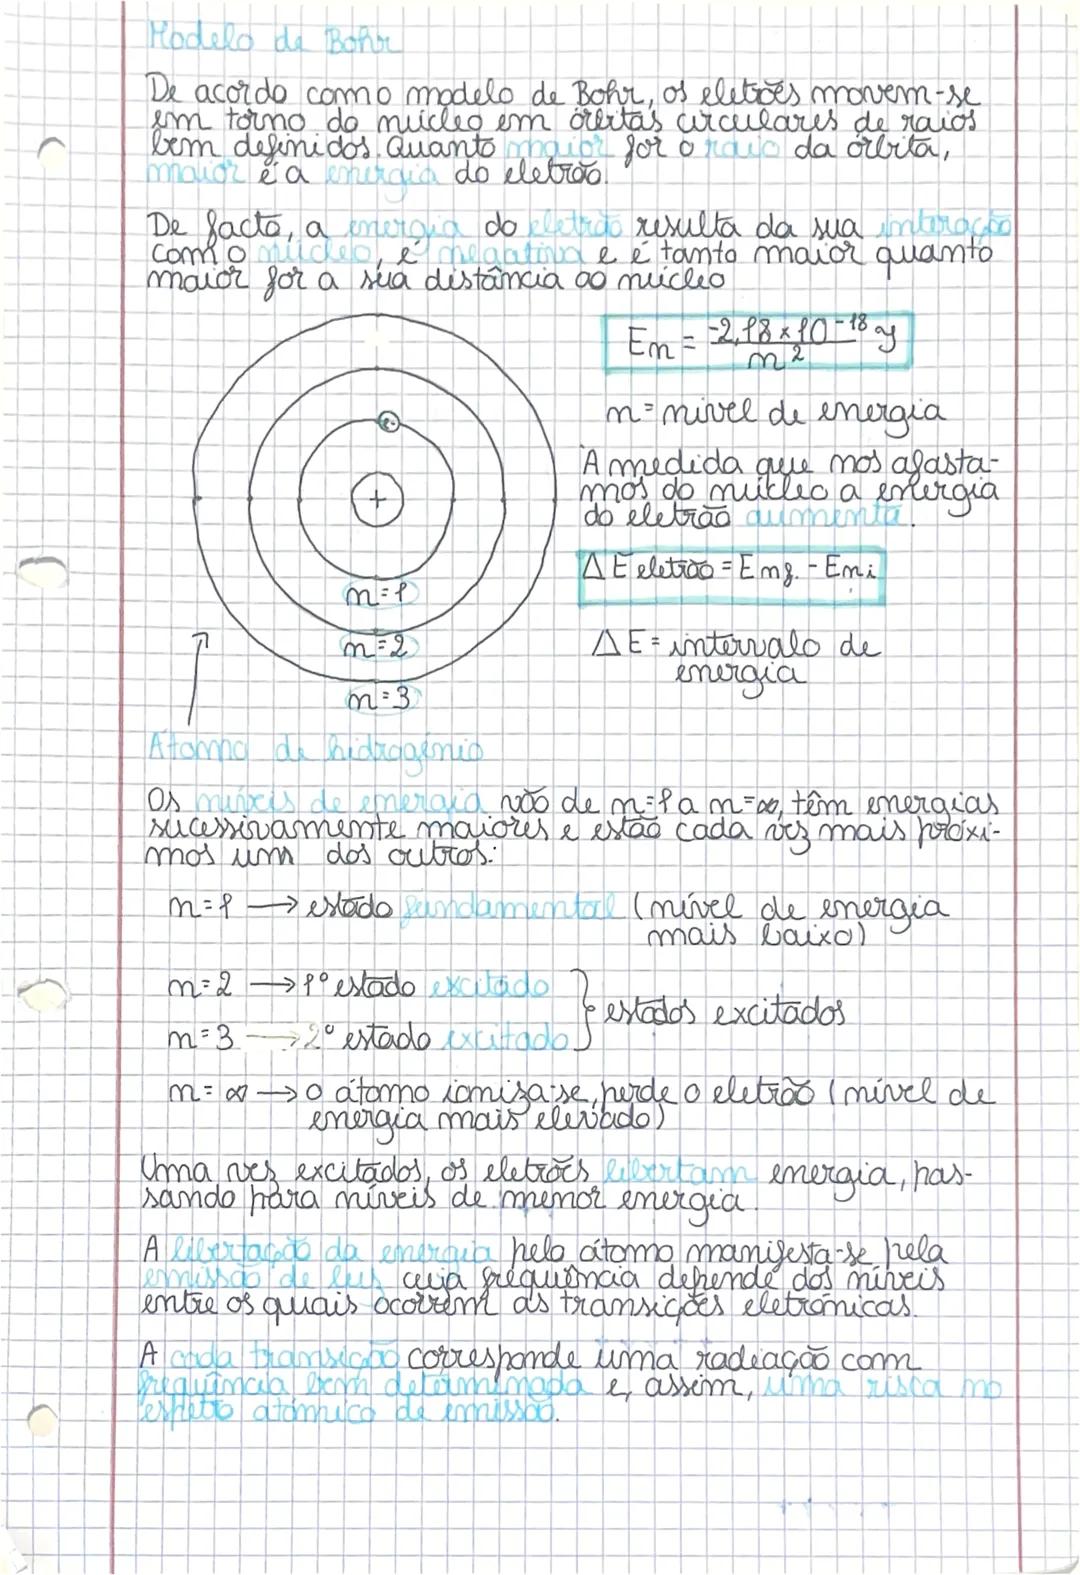 Modelo de Bohr
De acordo com o modelo de Bohr, os eletrões movem-se
em torno do núcleo em órbitas circulares de raios
bem definidos. Quanto maior for o raio da órbita,
maior é a energia do eletrão.
De facto, a energia do eletrão resulta da sua interação
com o núcleo, é negativa e é tanto maior quanto
maior for a sua distância ao núcleo
En = -2,18 × 10^-18 J / n²
n = nível de energia
À medida que nos afasta-
mos do núcleo a energia
do eletrão aumenta.
ΔE eletrão = Enf. - Eni
ΔE = intervalo de
energia
e-
+
n=1
n=2
n=3
Átomo de hidrogénio
Os níveis de energia vão de n=1 a n=∞, têm energias
sucessivamente maiores e estão cada vez mais próxi-
mos um dos outros:
n=1 → estado fundamental (nível de energia
mais baixo)
n=2 → 1º estado excitado
n=3 → 2º estado excitado
} estados excitados
n=∞ → o átomo ioniza-se, perde o eletrão (nível de
energia mais elevado)
Uma vez excitados, os eletrões libertam energia, pas-
sando para níveis de menor energia.
A libertação da energia pelo átomo manifesta-se pela
emissão de luz cuja frequência depende dos níveis
entre os quais ocorrem as transições eletrónicas.
A cada transição corresponde uma radiação com
frequência bem determinada e, assim, uma risca no
espetro atómico de emissão.